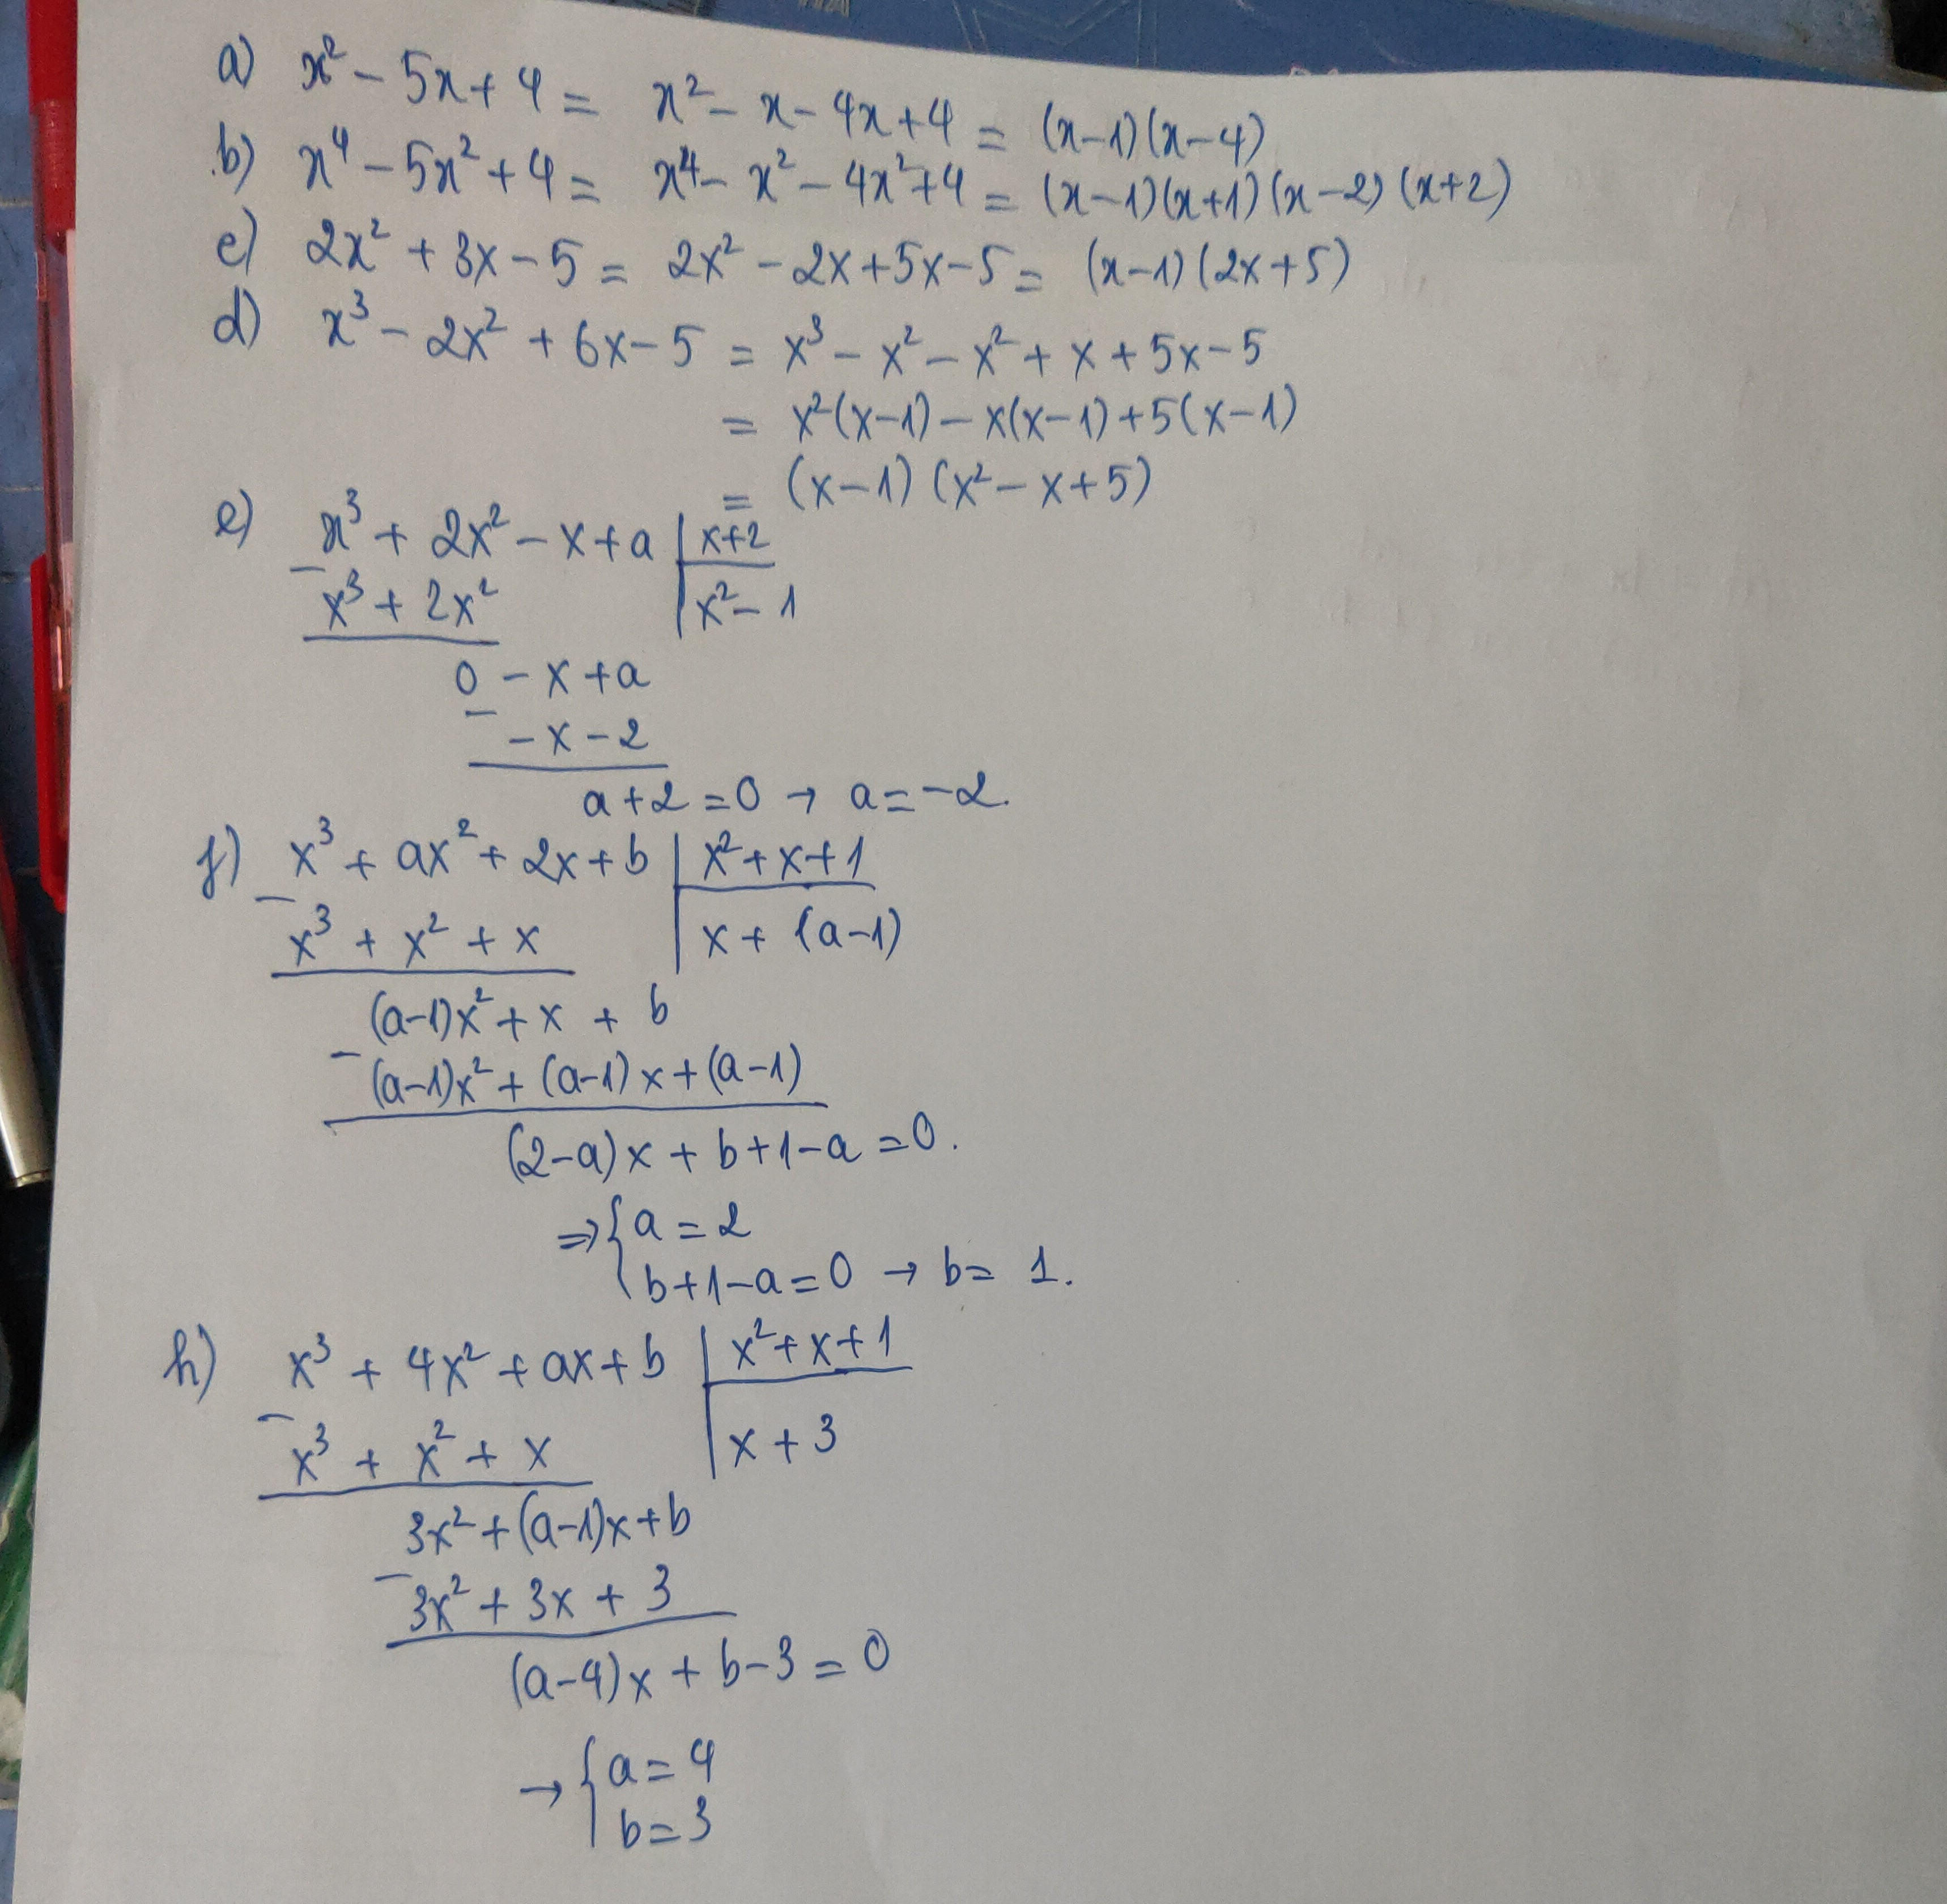 a) x² - 5x + 4 = x² - x - 4x + 4 = (x-1)(x-4)
b) x⁴ - 5x² + 4 = x⁴ - x² - 4x² + 4 = (x-1)(x+1)(x-2)(x+2)
c) 2x² + 3x - 5 = 2x² - 2x + 5x - 5 = (x-1)(2x+5)
d) x³ - 2x² + 6x - 5 = x³ - x² - x² + x + 5x - 5
= x²(x-1) - x(x-1) + 5(x-1)
= (x-1)(x² - x + 5)
e) x³ + 2x² - x + a | x+2
- x³ + 2x² | x² - 1
0 - x + a
- - x - 2
a + 2 = 0 → a = -2.
f) x³ + ax² + 2x + b | x² + x + 1
- x³ + x² + x | x + (a-1)
(a-1)x² + x + b
- (a-1)x² + (a-1)x + (a-1)
(2-a)x + b + 1 - a = 0.
⇒ { a = 2
b + 1 - a = 0 → b = 1.
h) x³ + 4x² + ax + b | x² + x + 1
- x³ + x² + x | x + 3
3x² + (a-1)x + b
- 3x² + 3x + 3
(a-4)x + b - 3 = 0
→ { a = 4
b = 3